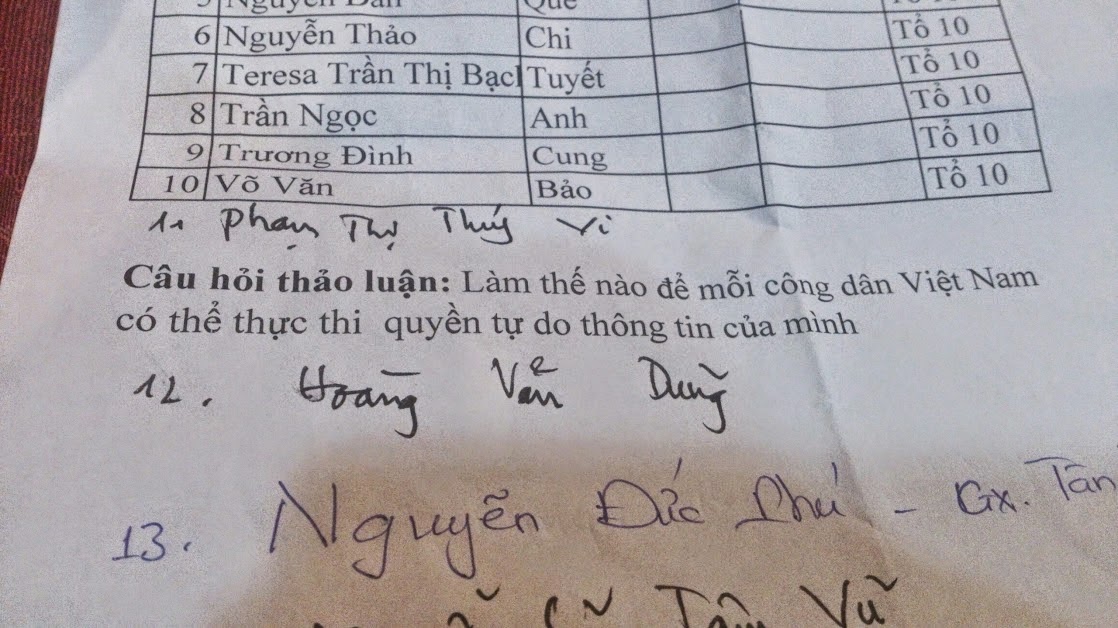 5 Nguyễn Đan Quế
6 Nguyễn Thảo Chi Tổ 10
7 Teresa Trần Thị Bạch Tuyết Tổ 10
8 Trần Ngọc Anh Tổ 10
9 Trương Đình Cung Tổ 10
10 Võ Văn Bảo Tổ 10
11 Phạm Thị Thúy Vi
Câu hỏi thảo luận: Làm thế nào để mỗi công dân Việt Nam
có thể thực thi quyền tự do thông tin của mình
12. Hoàng Văn Dũng
13. Nguyễn Đức Phú - Gx. Tân
Tâm Vũ